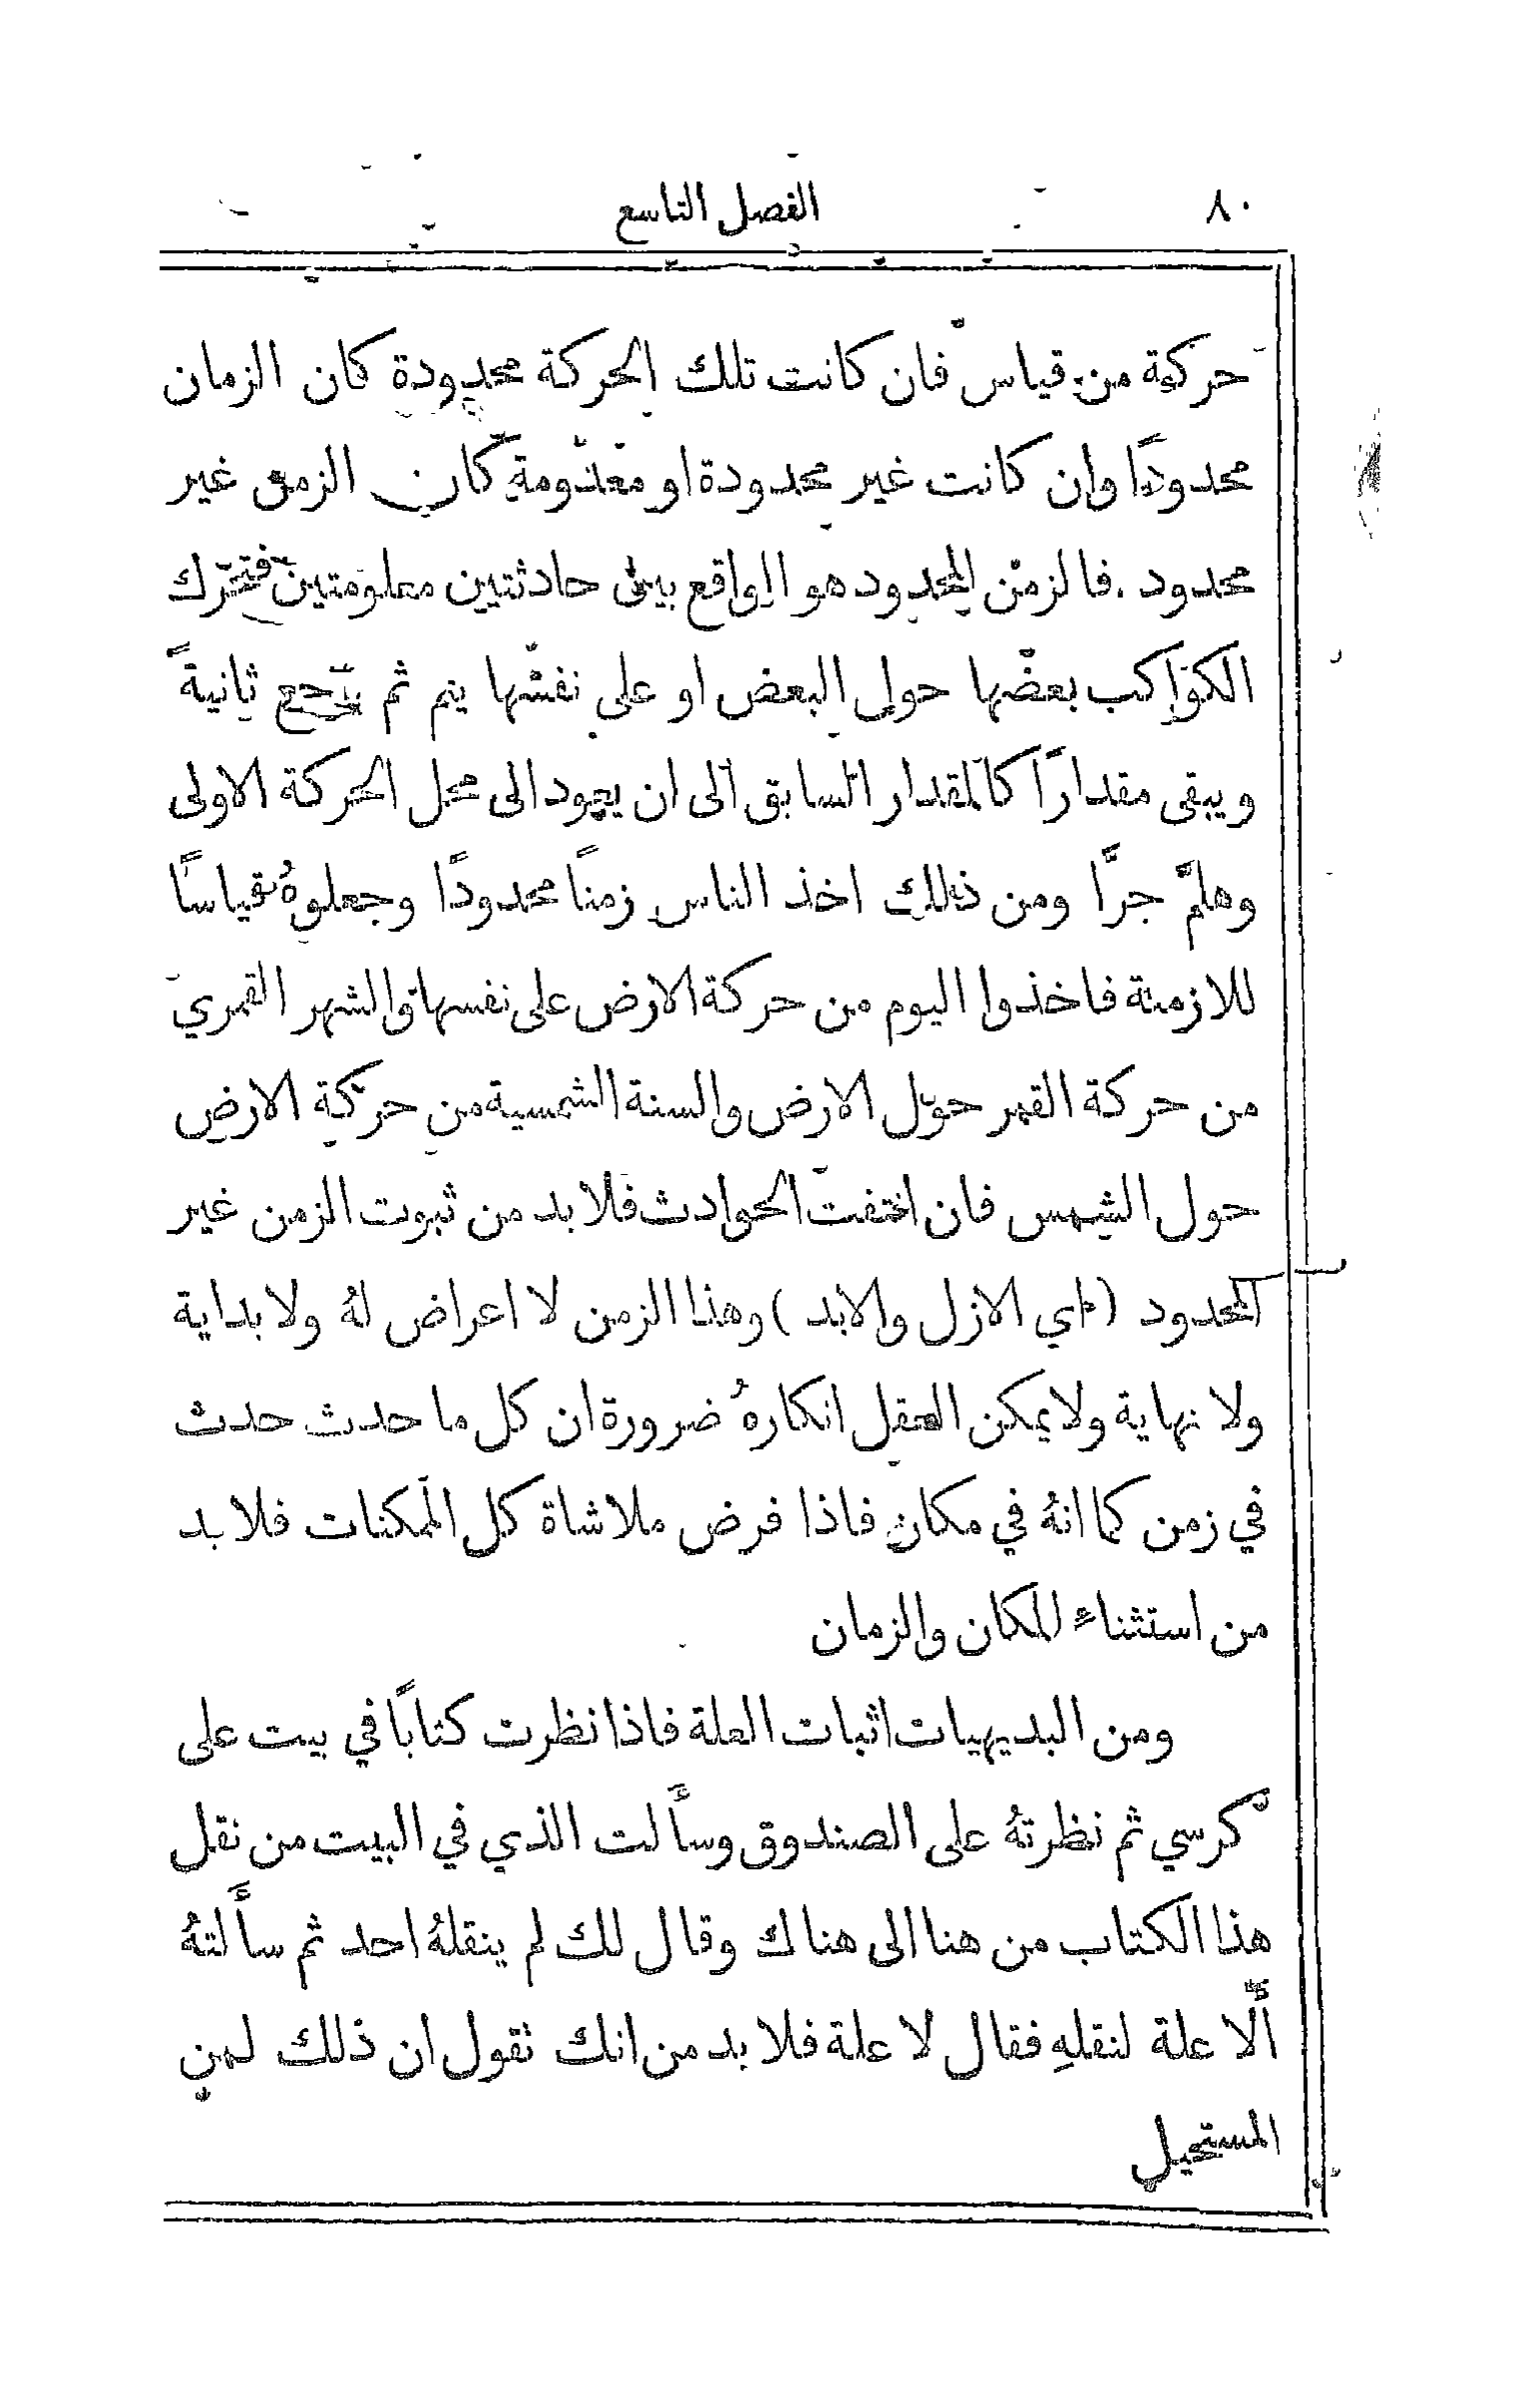 ٨٠
الفصل التاسع
حركة من قياس فان كانت تلك الحركة محدودة كان الزمان
محدودًا وان كانت غير محدودة او معدومة كان الزمن غير
محدود . فالزمن المحدود هو الواقع بين حادثتين معلومتين فتتحرك
الكواكب بعضها حول البعض او على نفسها يتم ثم يرجع ثانيةً
ويبقى مقدارًا كالمقدار السابق الى ان يعود الى محل الحركة الاولى
وهلمَّ جرًّا ومن ذلك اخذ الناس زمنًا محدودًا وجعلوهُ قياسًا
للازمنة فاخذوا اليوم من حركة الارض على نفسها والشهر القمري
من حركة القمر حول الارض والسنة الشمسية من حركة الارض
حول الشمس فان اختفت الحوادث فلا بد من ثبوت الزمن غير
المحدود (اي الازل والابد) وهذا الزمن لا اعراض لهُ ولا بداية
ولا نهاية ولا يمكن العقل انكارهُ ضرورة ان كل ما حدث حدث
في زمن كما انهُ في مكان فاذا فرض ملاشاة كل الممكنات فلا بد
من استثناء المكان والزمان
ومن البديهيات اثبات العلة فاذا نظرت كتابًا في بيت على
كرسي ثم نظرتهُ على الصندوق وسأَلت الذي في البيت من نقل
هذا الكتاب من هنا الى هناك وقال لك لم ينقلهُ احد ثم سأَلتهُ
أَلا علة لنقلهِ فقال لا علة فلا بد من انك نقول ان ذلك لمن
المستحيل